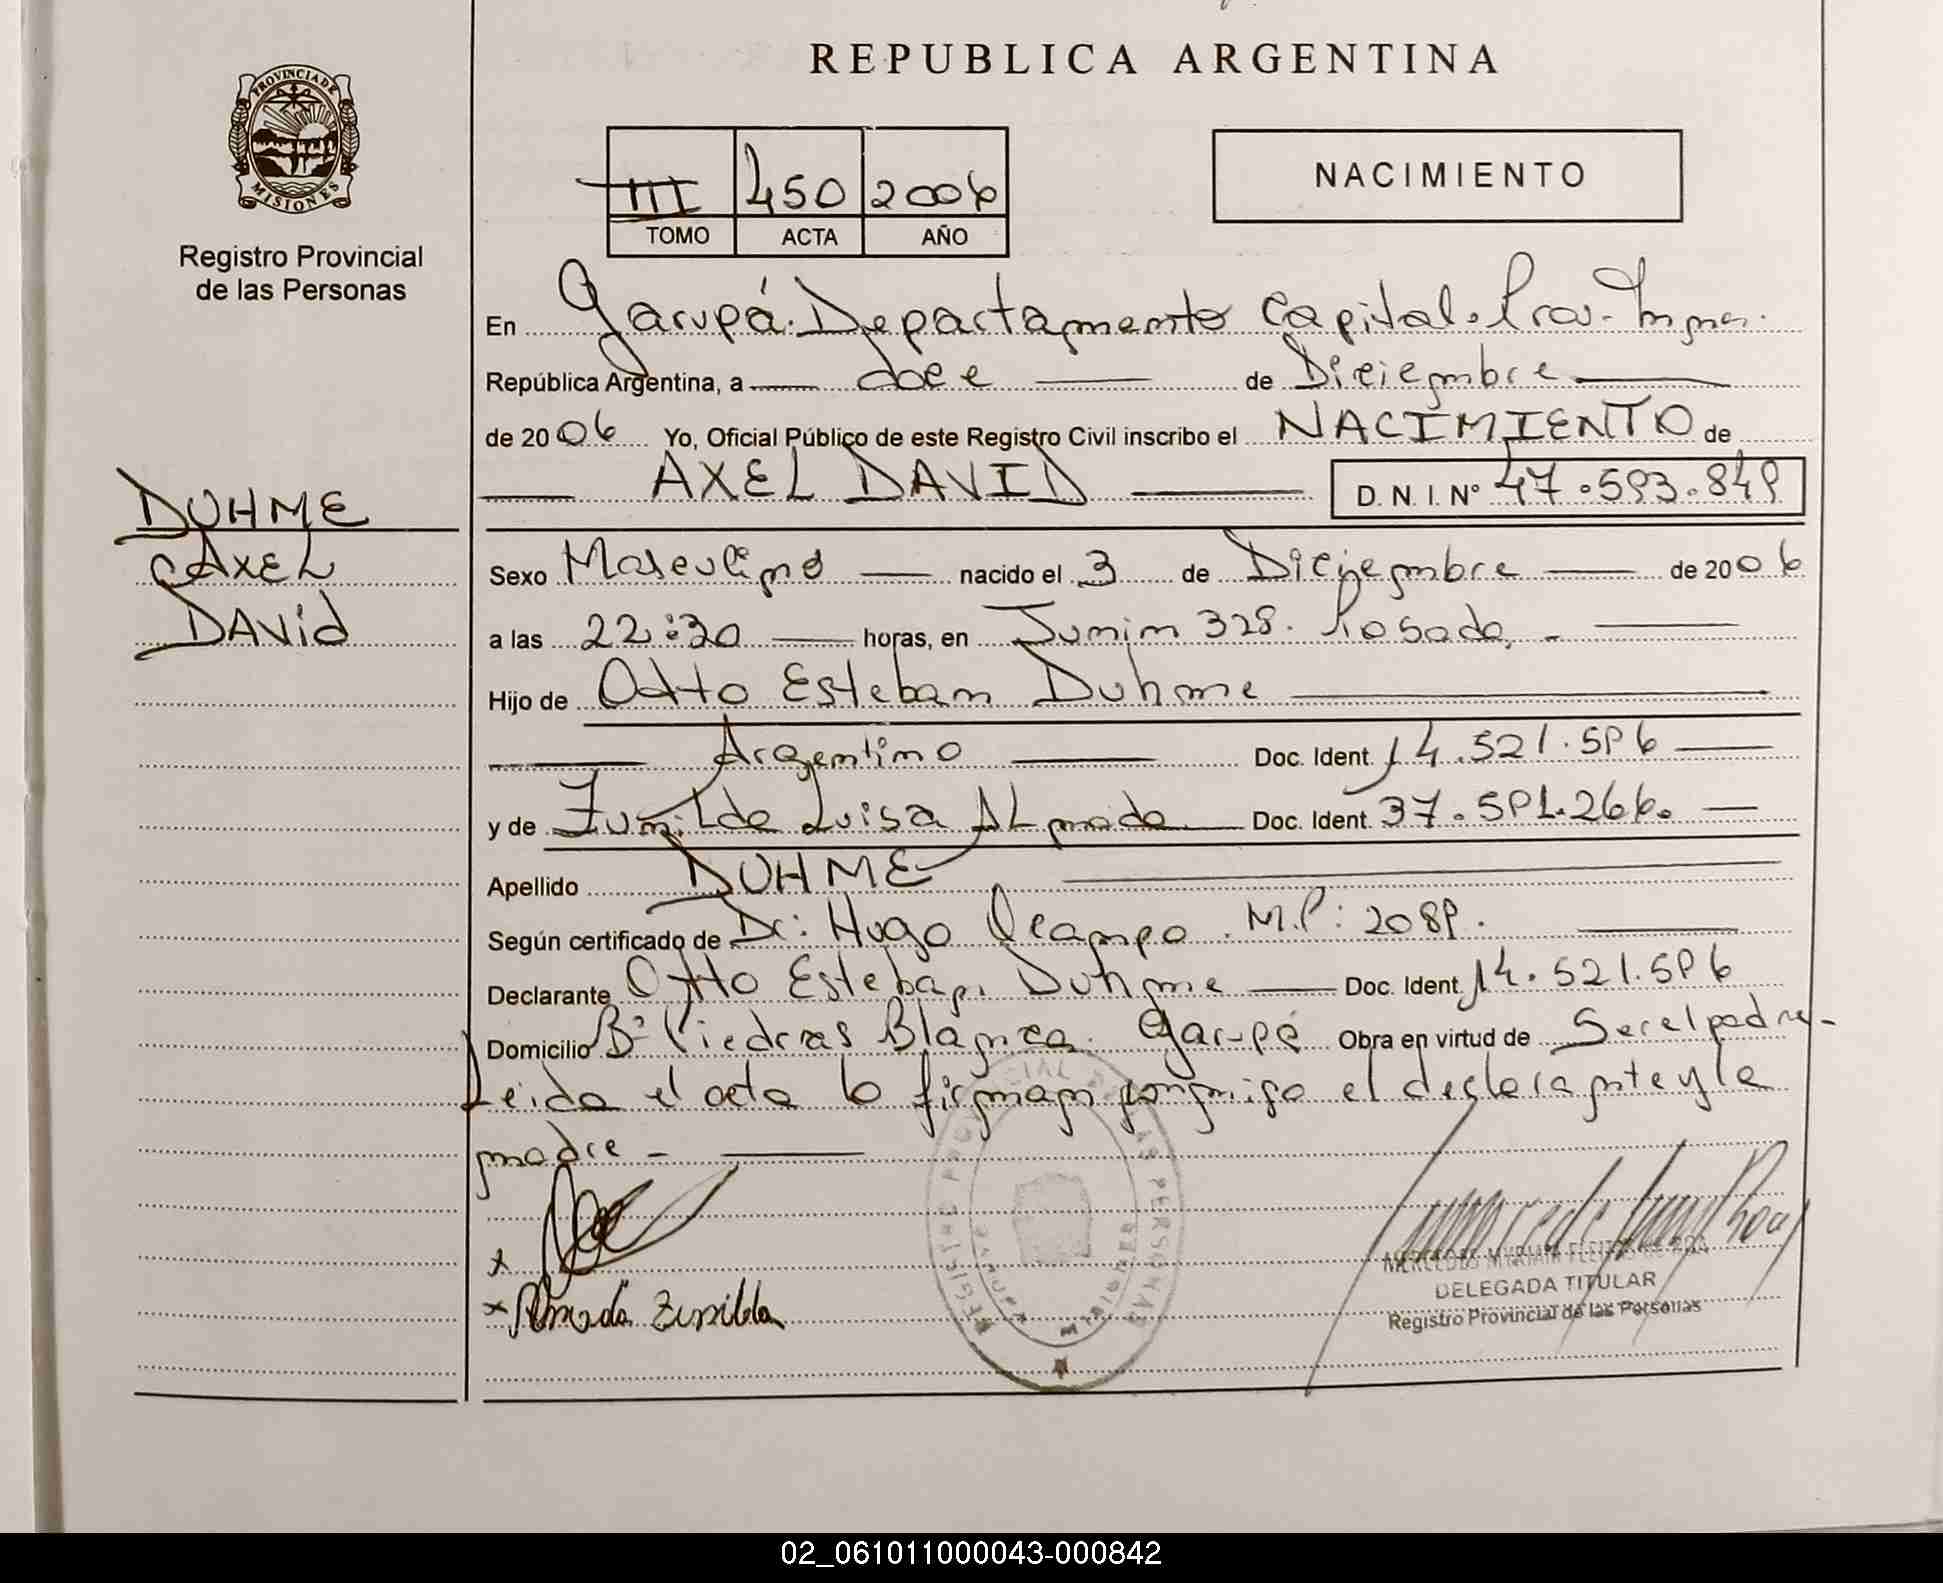 REPUBLICA ARGENTINA
PROVINCIA DE
MISIONES
Registro Provincial
de las Personas
III 450 2006
TOMO ACTA AÑO
NACIMIENTO
En Garupá. Departamento Capital. Prov.
República Argentina, a doce de Diciembre
de 2006 Yo, Oficial Público de este Registro Civil inscribo el NACIMIENTO de
AXEL DAVID D. N. I. Nº 47.593.849
DUHME
AXEL
DAVID
Sexo Masculino nacido el 3 de Diciembre de 2006
a las 22:30 horas, en Junin 328. Posadas
Hijo de Otto Esteban Duhme
Argentino Doc. Ident. 14.521.596
y de Zunilda Luisa Almada Doc. Ident. 37.591.266.
Apellido DUHME
Según certificado de Dr: Hugo Ocampo. M.P: 2089.
Declarante Otto Esteban Duhme Doc. Ident. 14.521.596
Domicilio Bº Piedras Blancas. Garupá Obra en virtud de Ser el padre-
Leida el acta la firman conmigo el declarante y la
madre -
x
x Almada Zunilda
REGISTRO PROVINCIAL DE LAS PERSONAS
MISIONES
DELEGADA TITULAR
Registro Provincial de las Personas
02_061011000043-000842